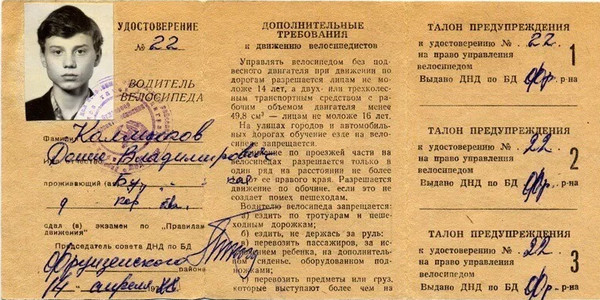 УДОСТОВЕРЕНИЕ
№ 22
ВОДИТЕЛЬ
ВЕЛОСИПЕДА
Фамилия
Владимирович
проживающий (ая)
9 кв.
сдал (а) экзамен по „Правилам
движения“
Председатель совета ДНД по БД
Фрунзенского
района
14 апреля
ДОПОЛНИТЕЛЬНЫЕ
ТРЕБОВАНИЯ
к движению велосипедистов
Управлять велосипедом без под-
весного двигателя при движении по
дорогам разрешается лицам не мо-
ложе 14 лет, а двух- или трехко-
лесным транспортным средством с рабо-
чим объемом двигателя менее
49,8 см³ — лицам не моложе 16 лет.
На улицах городов и автомобиль-
ных дорогах обучение езде на вело-
сипеде запрещается.
Движение по проезжей части на
велосипедах разрешается только в
один ряд на расстоянии не более
1 м от ее правого края. Разрешается
движение по обочине, если это не
создает помех пешеходам.
Водителю велосипеда запрещается:
а) ездить по тротуарам и пеше-
ходным дорожкам;
б) ездить, не держась за руль;
в) перевозить пассажиров, за ис-
ключением ребенка, на дополни-
тельном сиденье, оборудованном под-
ножками;
г) перевозить предметы или груз,
которые выступают более чем на
ТАЛОН ПРЕДУПРЕЖДЕНИЯ
к удостоверению № 22
на право управления
велосипедом.
1
Выдано ДНД по БД Фр. р-на
ТАЛОН ПРЕДУПРЕЖДЕНИЯ
к удостоверению № 22
на право управления
велосипедом.
2
Выдано ДНД по БД Фр. р-на
ТАЛОН ПРЕДУПРЕЖДЕНИЯ
к удостоверению № 22
на право управления
велосипедом.
3
Выдано ДНД по БД Фр. р-на